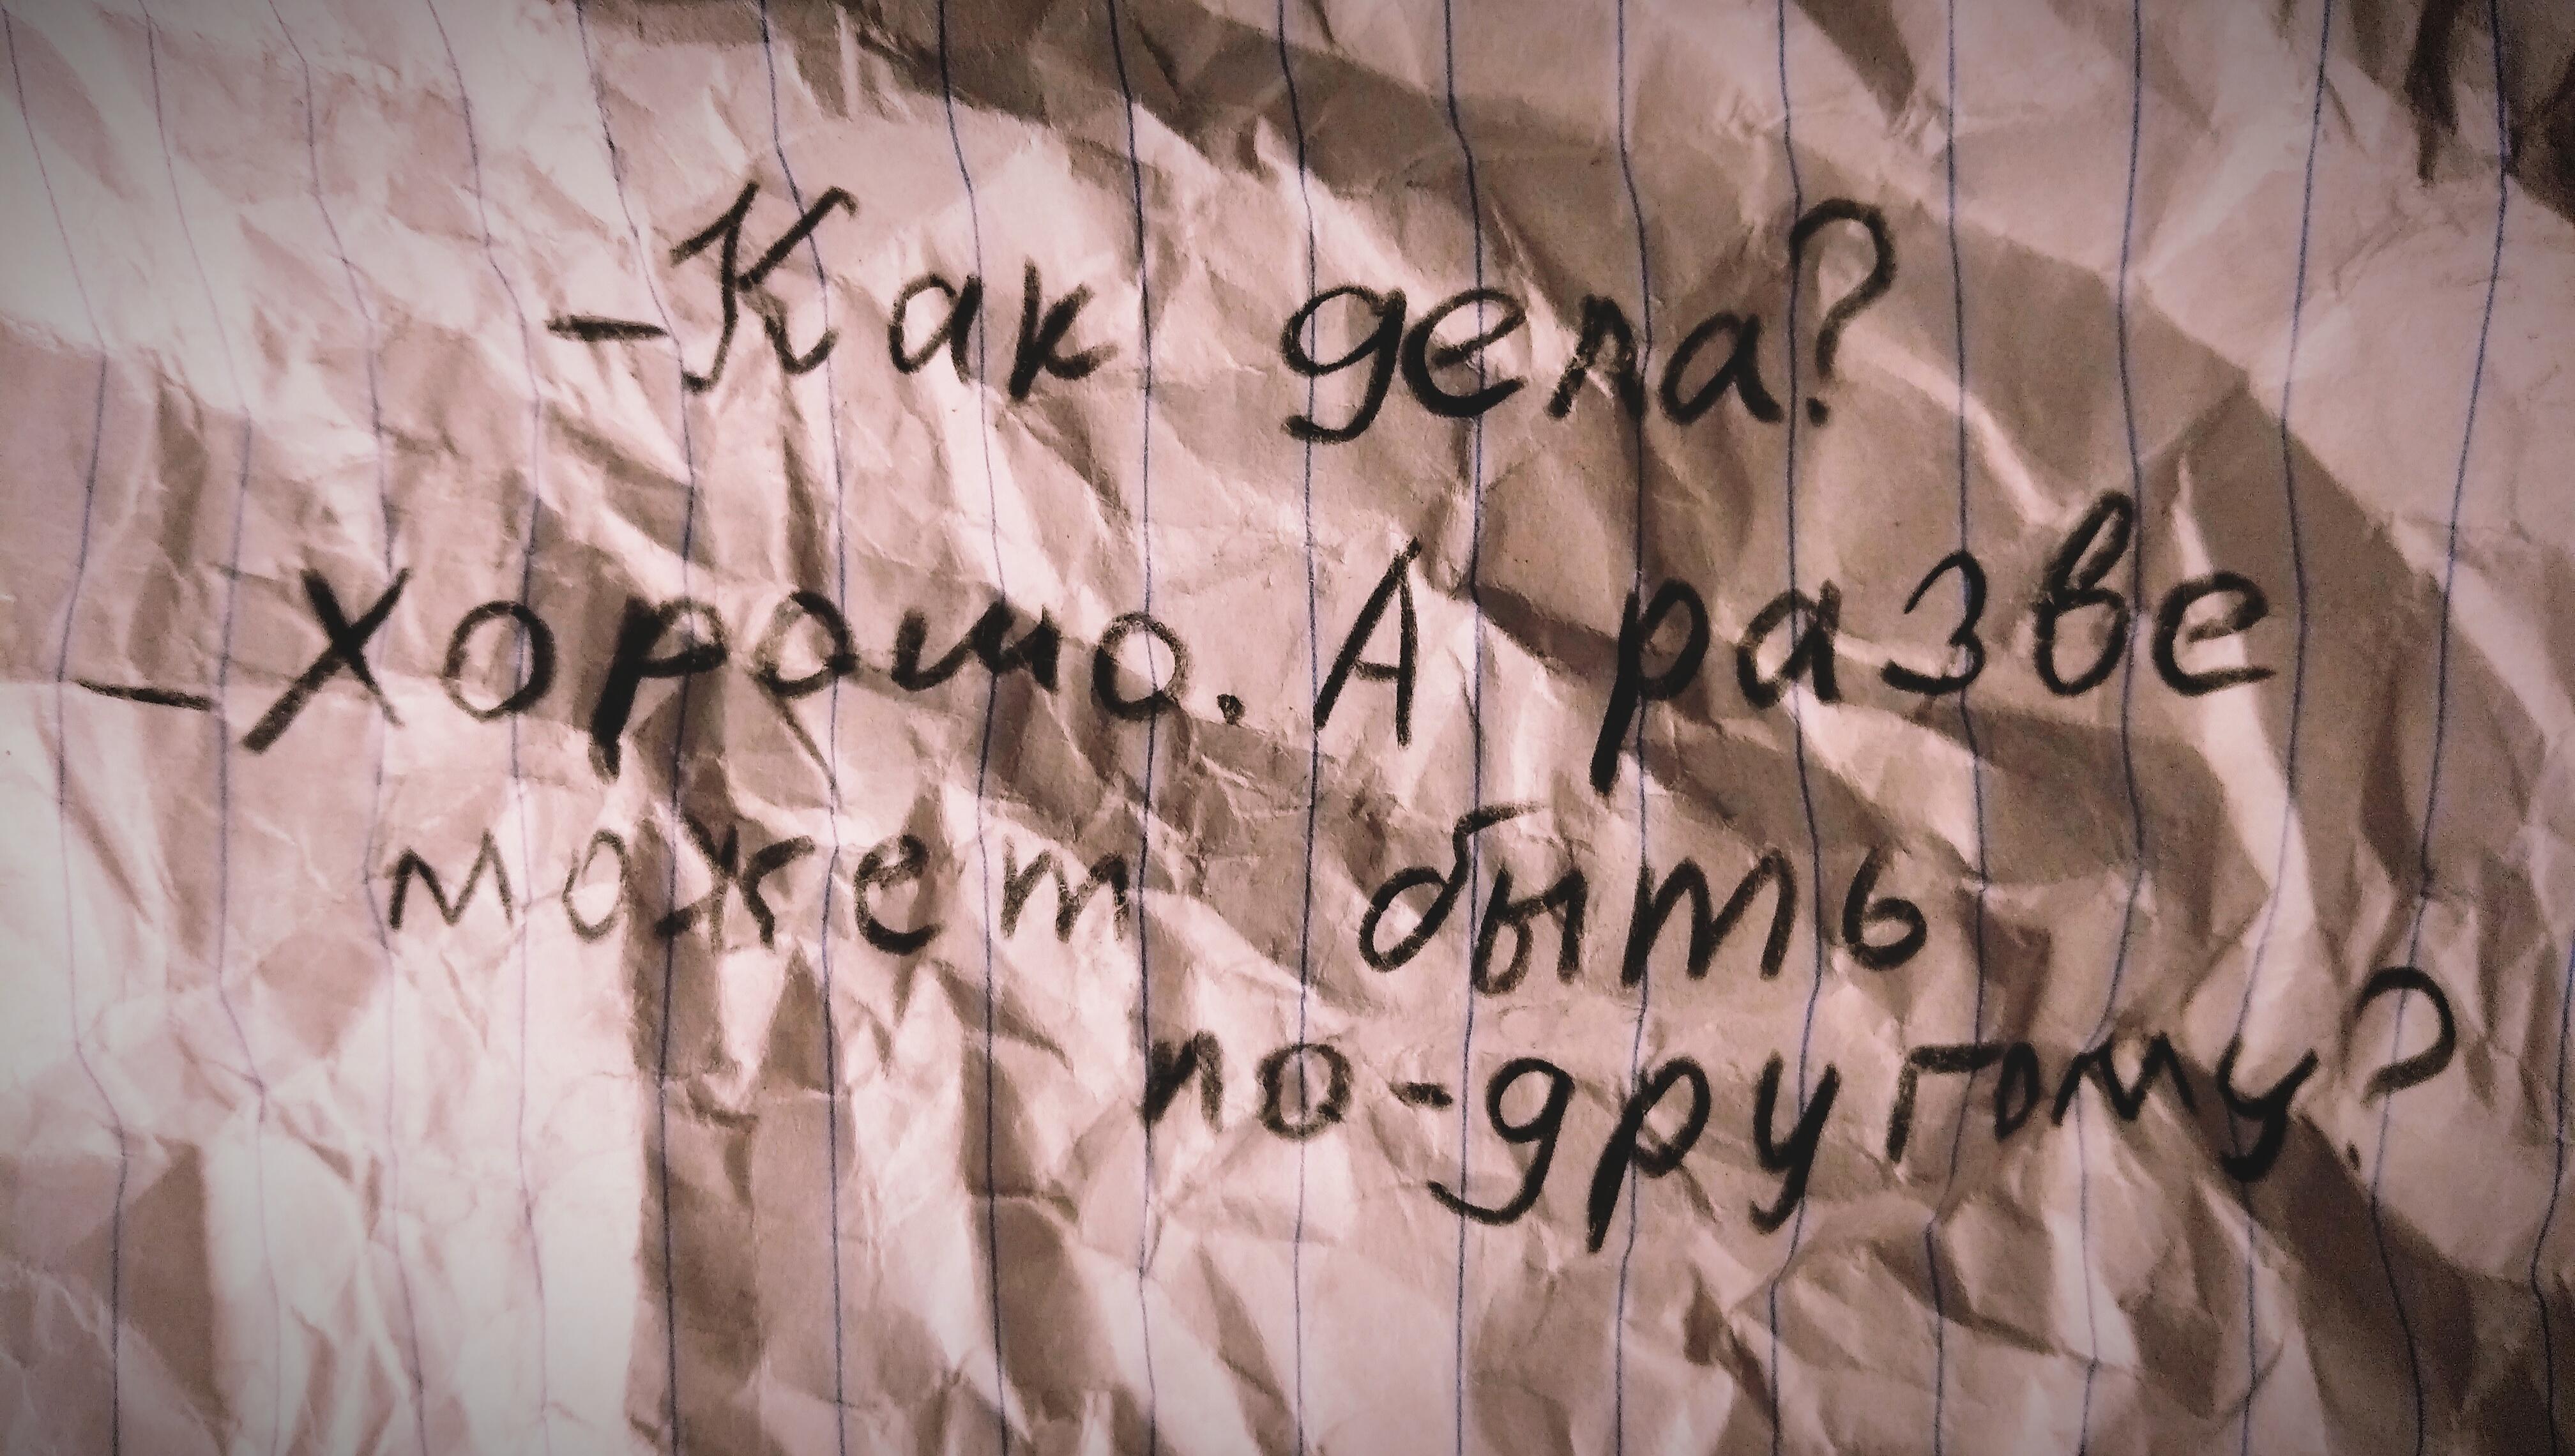 -Как дела?
-Хорошо. А разве
может быть
по-другому?